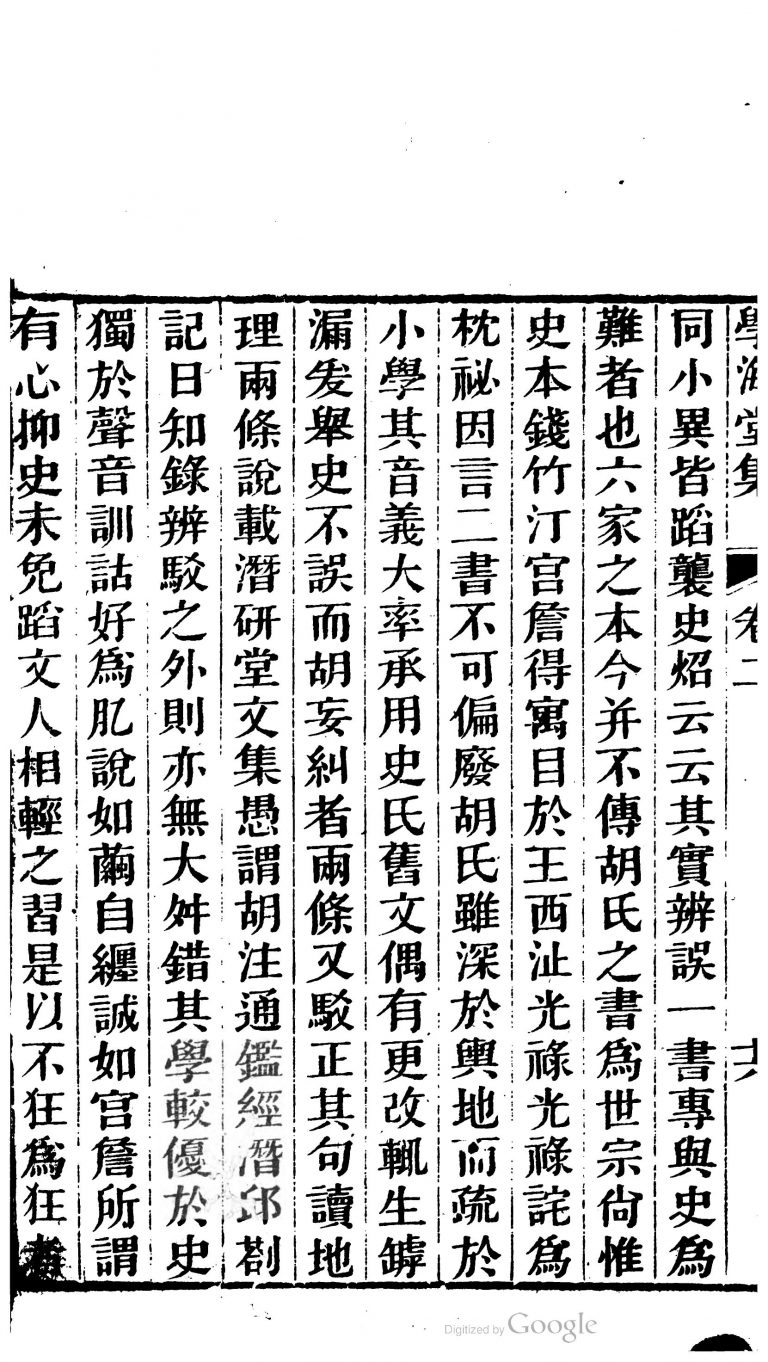 學海堂集　卷二　十六
同小異皆蹈襲史炤云云其實辨誤一書專與史爲
難者也六家之本今并不傳胡氏之書爲世宗尙惟
史本錢竹汀宫詹得寓目於王西沚光祿光祿詫爲
枕祕因言二書不可偏廢胡氏雖深於輿地而疏於
小學其音義大率承用史氏舊文偶有更改輒生罅
漏爰舉史不誤而胡妄糾者兩條又駁正其句讀地
理兩條說載潛研堂文集愚謂胡注通鑑經潛邱劄
記日知錄辨駁之外則亦無大舛錯其學較優於史
獨於聲音訓詁好爲肊說如繭自纏誠如宫詹所謂
有心抑史未免蹈文人相輕之習是以不狂爲狂者
Digitized by Google